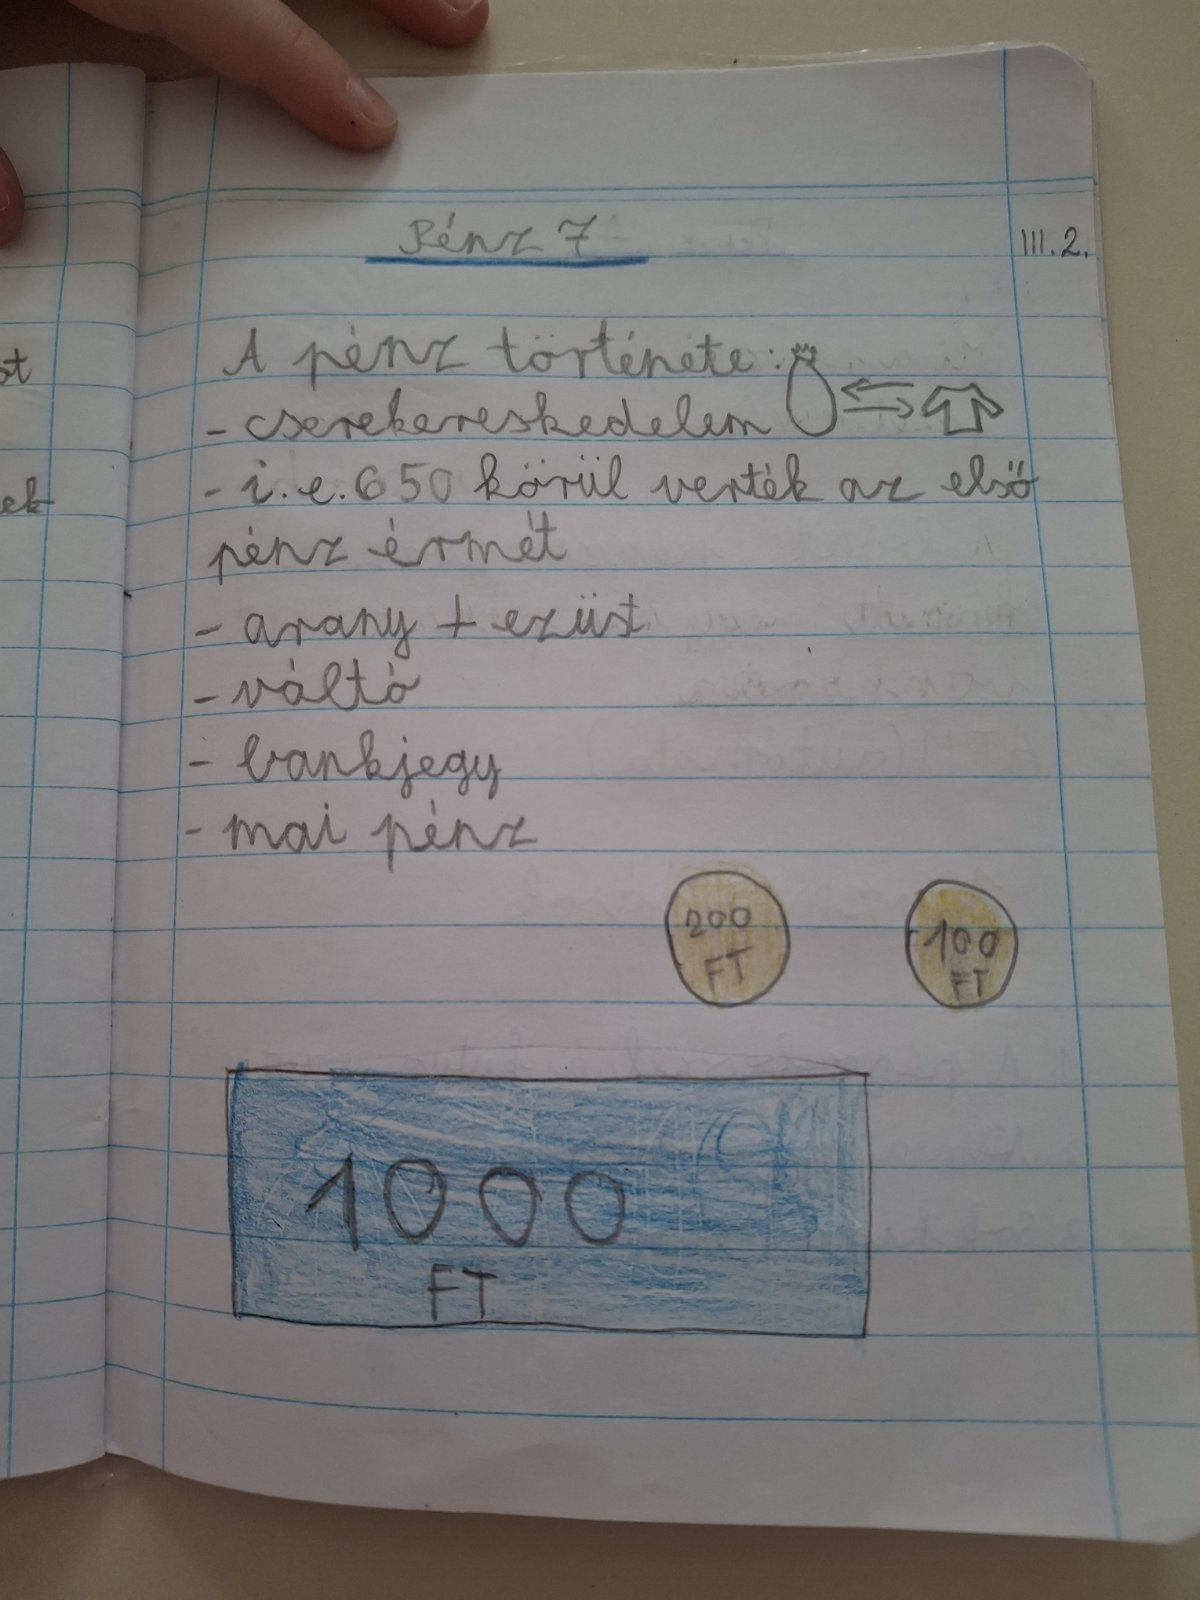 Pénz 7
III. 2.
A pénz története:
- cserekereskedelem
- i.e. 650 körül verték az első
pénz érmét
- arany + ezüst
- váltó
- bankjegy
- mai pénz
200
FT
100
FT
1000
FT
st
ek